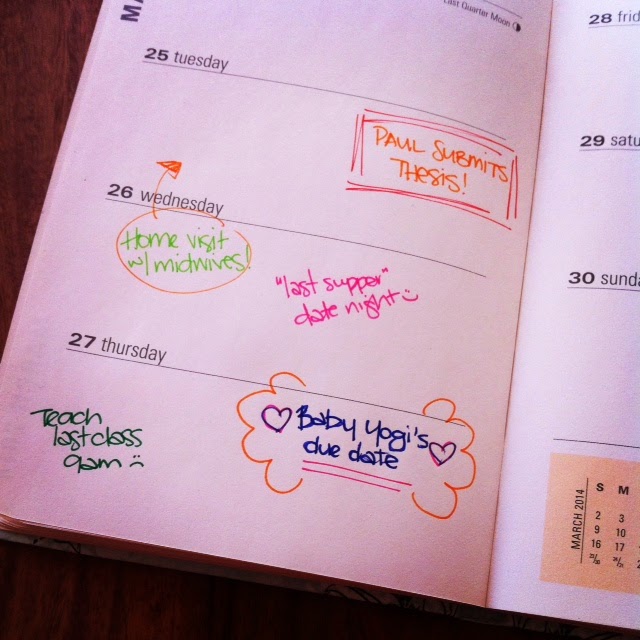 MA
Last Quarter Moon
25 tuesday
PAUL SUBMITS
THESIS!
26 wednesday
Home visit
w/ midwives!
"last supper"
date night
27 thursday
Teach
last class
9am
Baby Yogi's
due date
28 frid
29 satu
30 sunda
MARCH 2014
S M
2 3
9 10
16 17